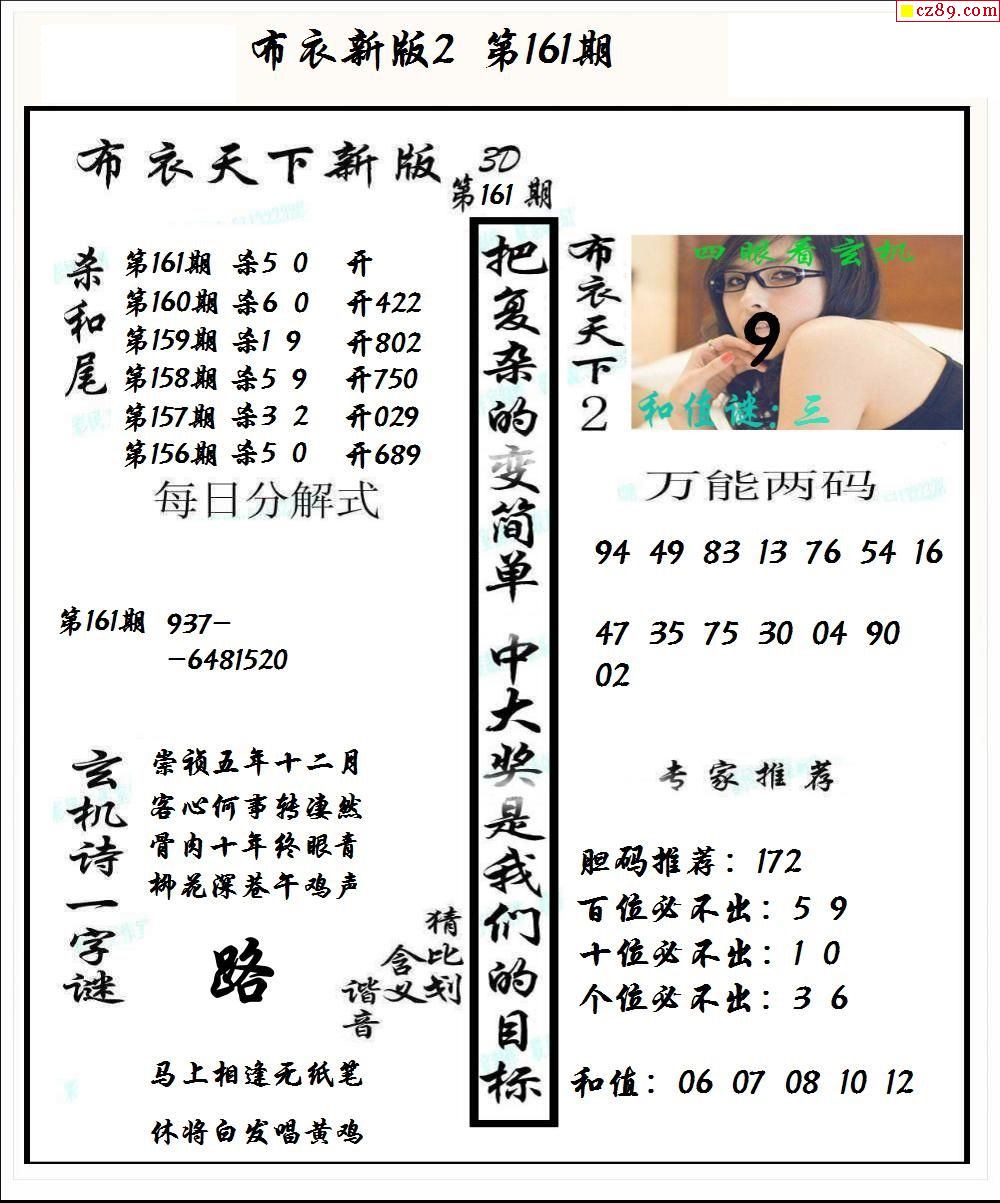 cz89.com
布衣新版2 第161期
布衣天下新版 3D
第161期
杀和尾
第161期 杀5 0 开
第160期 杀6 0 开422
第159期 杀1 9 开802
第158期 杀5 9 开750
第157期 杀3 2 开029
第156期 杀5 0 开689
每日分解式
第161期 937-
-6481520
玄机诗一字谜
崇祯五年十二月
客心何事转凄然
骨肉十年终眼青
柳花深巷午鸡声
路
猜比划
含义
谐音
马上相逢无纸笔
休将白发唱黄鸡
把复杂的变简单 中大奖是我们的目标
布衣天下2
四眼看玄机
9
和值谜:三
万能两码
94 49 83 13 76 54 16
47 35 75 30 04 90
02
专家推荐
胆码推荐：172
百位必不出：5 9
十位必不出：1 0
个位必不出：3 6
和值：06 07 08 10 12